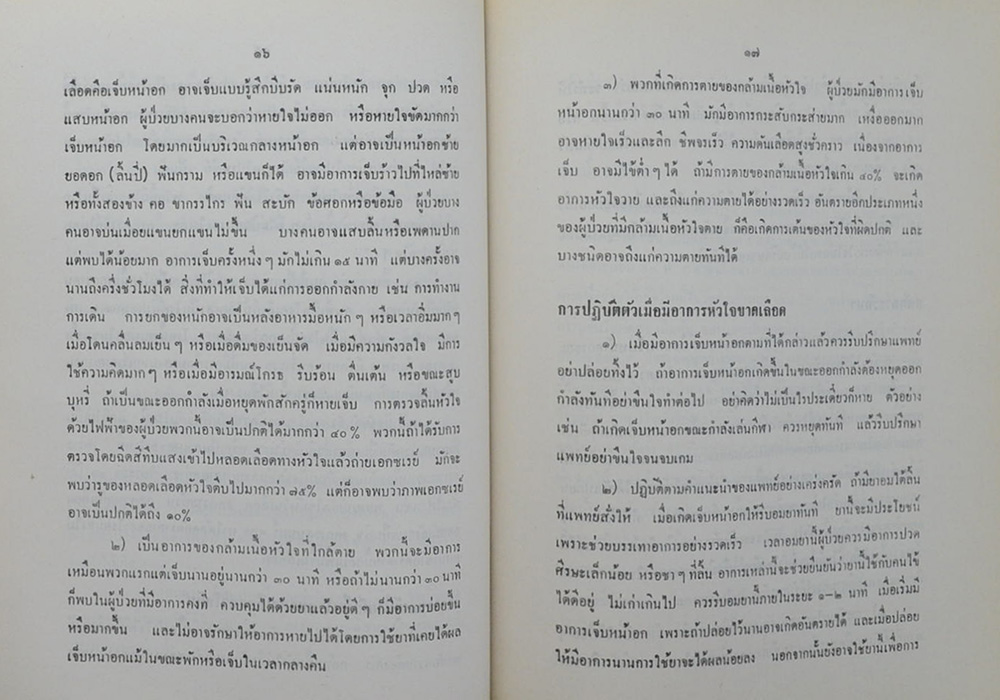 ๑๖
เลือดคือเจ็บหน้าอก อาจเจ็บแบบรู้สึกบีบรัด แน่นหนัก จุก ปวด หรือ
แสบหน้าอก ผู้ป่วยบางคนจะบอกว่าหายใจไม่ออก หรือหายใจขัดมากกว่า
เจ็บหน้าอก โดยมากเป็นบริเวณกลางหน้าอก แต่อาจเป็นหน้าอกซ้าย
ยอดอก (ลิ้นปี่) ฟันกราม หรือแขนก็ได้ อาจมีอาการเจ็บร้าวไปที่ไหล่ซ้าย
หรือทั้งสองข้าง คอ ขากรรไกร ฟัน สะบัก ข้อศอกหรือข้อมือ ผู้ป่วยบาง
คนอาจบ่นเมื่อยแขนยกแขนไม่ขึ้น บางคนอาจแสบลิ้นหรือเพดานปาก
แต่พบได้น้อยมาก อาการเจ็บครั้งหนึ่ง ๆ มักไม่เกิน ๑๕ นาที แต่บางครั้งอาจ
นานถึงครึ่งชั่วโมงได้ สิ่งที่ทำให้เจ็บได้แก่การออกกำลังกาย เช่น การทำงาน
การเดิน การยกของหนักอาจเป็นหลังอาหารมื้อหนัก ๆ หรือเวลาอิ่มมาก ๆ
เมื่อโดนคลื่นลมเย็น ๆ หรือเมื่อดื่มของเย็นจัด เมื่อมีความกังวลใจ มีการ
ใช้ความคิดมาก ๆ หรือเมื่อมีอารมณ์โกรธ รีบร้อน ตื่นเต้น หรือขณะสูบ
บุหรี่ ถ้าเป็นขณะออกกำลังเมื่อหยุดพักสักครู่ก็หายเจ็บ การตรวจลิ้นหัวใจ
ด้วยไฟฟ้าของผู้ป่วยพวกนี้อาจเป็นปกติได้มากกว่า ๔๐% พวกนี้ถ้าได้รับการ
ตรวจโดยฉีดสีทึบแสงเข้าไปหลอดเลือดทางหัวใจแล้วถ่ายเอกซเรย์ มักจะ
พบว่ารูของหลอดเลือดหัวใจตีบไปมากกว่า ๗๕% แต่ก็อาจพบว่าภาพเอกซเรย์
อาจเป็นปกติได้ถึง ๑๐%
๒) เป็นอาการของกล้ามเนื้อหัวใจที่ใกล้ตาย พวกนี้จะมีอาการ
เหมือนพวกแรกแต่เจ็บนานอยู่นานกว่า ๓๐ นาที หรือถ้าไม่นานกว่า ๓๐ นาที
ก็พบในผู้ป่วยที่มีอาการคงที่ ควบคุมได้ด้วยยาแล้วอยู่ดี ๆ ก็มีอาการบ่อยขึ้น
หรือมากขึ้น และไม่อาจรักษาให้อาการหายไปได้โดยการใช้ยาที่เคยได้ผล
เจ็บหน้าอกแม้ในขณะพักหรือเจ็บในเวลากลางคืน
๑๗
๓) พวกที่เกิดการตายของกล้ามเนื้อหัวใจ ผู้ป่วยมักมีอาการเจ็บ
หน้าอกนานกว่า ๓๐ นาที มักมีอาการกระสับกระส่ายมาก เหงื่อออกมาก
อาจหายใจเร็วและลึก ชีพจรเร็ว ความดันเลือดสูงชั่วคราว เนื่องจากอาการ
เจ็บ อาจมีไข้ต่ำ ๆ ได้ ถ้ามีการตายของกล้ามเนื้อหัวใจเกิน ๔๐% จะเกิด
อาการหัวใจวาย และถึงแก่ความตายได้อย่างรวดเร็ว อันตรายอีกประเภทหนึ่ง
ของผู้ป่วยที่มีกล้ามเนื้อหัวใจตาย ก็คือเกิดการเต้นของหัวใจที่ผิดปกติ และ
บางชนิดอาจถึงแก่ความตายทันทีได้
การปฏิบัติตัวเมื่อมีอาการหัวใจขาดเลือด
๑) เมื่อมีอาการเจ็บหน้าอกตามที่ได้กล่าวแล้วควรรีบปรึกษาแพทย์
อย่าปล่อยทิ้งไว้ ถ้าอาการเจ็บหน้าอกเกิดขึ้นในขณะออกกำลังต้องหยุดออก
กำลังทันทีอย่าขืนใจทำต่อไป อย่าคิดว่าไม่เป็นไรประเดี๋ยวก็หาย ตัวอย่าง
เช่น ถ้าเกิดเจ็บหน้าอกขณะกำลังเล่นกีฬา ควรหยุดทันที แล้วรีบปรึกษา
แพทย์อย่าขืนใจจนจบเกม
๒) ปฏิบัติตามคำแนะนำของแพทย์อย่างเคร่งครัด ถ้ามียาอมใต้ลิ้น
ที่แพทย์สั่งให้ เมื่อเกิดเจ็บหน้าอกให้รีบอมยาทันที ยานี้จะมีประโยชน์
เพราะช่วยบรรเทาอาการอย่างรวดเร็ว เวลาอมยานี้ผู้ป่วยควรมีอาการปวด
ศีรษะเล็กน้อย หรือซา ๆ ที่ลิ้น อาการเหล่านี้จะช่วยยืนยันว่ายานี้ใช้กับคนไข้
ได้ดีอยู่ ไม่เก่าเกินไป ควรรีบอมยานี้ภายในระยะ ๑-๒ นาที เมื่อเริ่มมี
อาการเจ็บหน้าอก เพราะถ้าปล่อยไว้นานอาจเกิดอันตรายได้ และเมื่อปล่อย
ให้มีอาการนานการใช้ยาจะได้ผลน้อยลง นอกจากนั้นยังอาจใช้ยานี้เพื่อการ